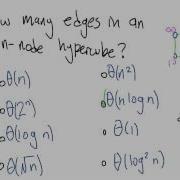 ow many edges in an
n-node hypercube?
Θ(n)
Θ(n²)
Θ(2ⁿ)
Θ(n log n)
Θ(log n)
Θ(1)
Θ(√n)
Θ(log² n)